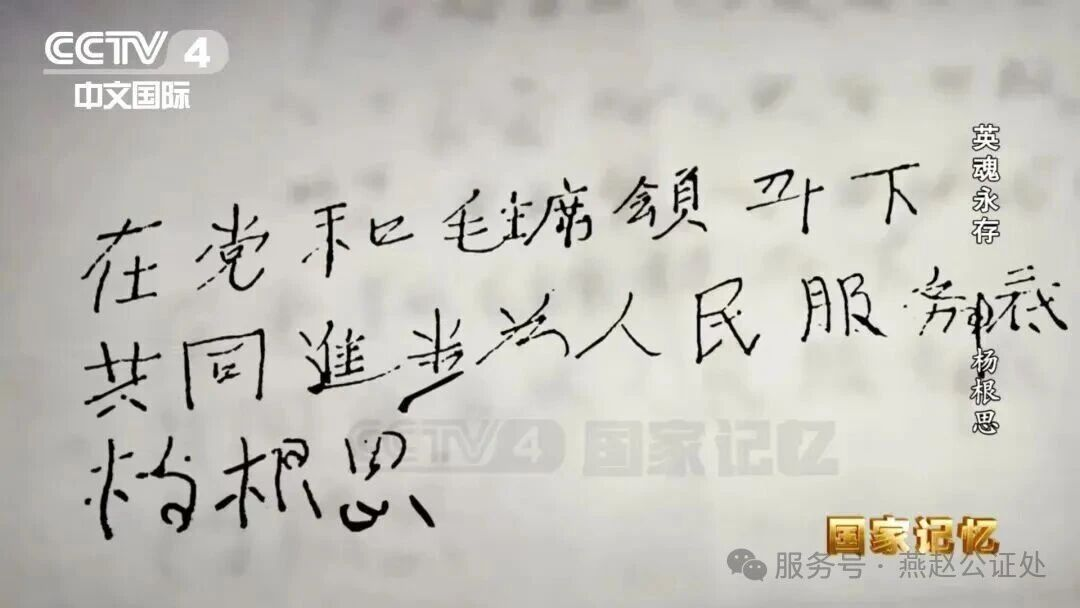 CCTV 4
中文国际
英魂永存 杨根思
在党和毛主席領导下
共同進步为人民服务到底
杨根思
CCTV4 国家记忆
国家记忆
服务号·燕赵公证处